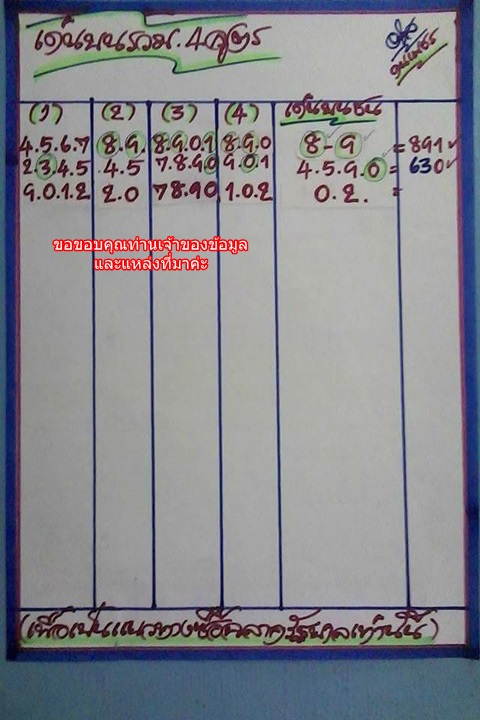 เด่นบนรวม.4สูตร
(1) (2) (3) (4) เด่นบนชน
4.5.6.7 8.9. 8.9.0.1 8.9.0 8-9 = 891
2.3.4.5 4.5 7.8.9.0 9.0.1 4.5.9.0 = 630
9.0.1.2 2.0 7.8.9.0 1.0.2 0.2. =
ขอขอบคุณท่านเจ้าของข้อมูล
และแหล่งที่มาค่ะ
(เพื่อเป็นแนวทางซื้อฉลากรัฐบาลเท่านั้น)